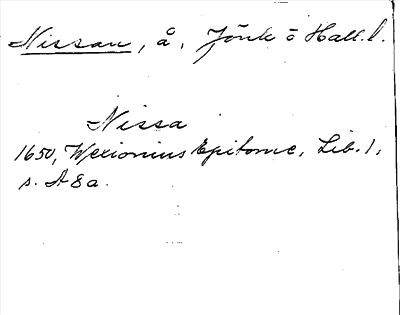 Nissan, å, Jönk ō Hall. l.
Nissa
1650, Wexionius Epitome, Lib. 1,
s. A 8 a.